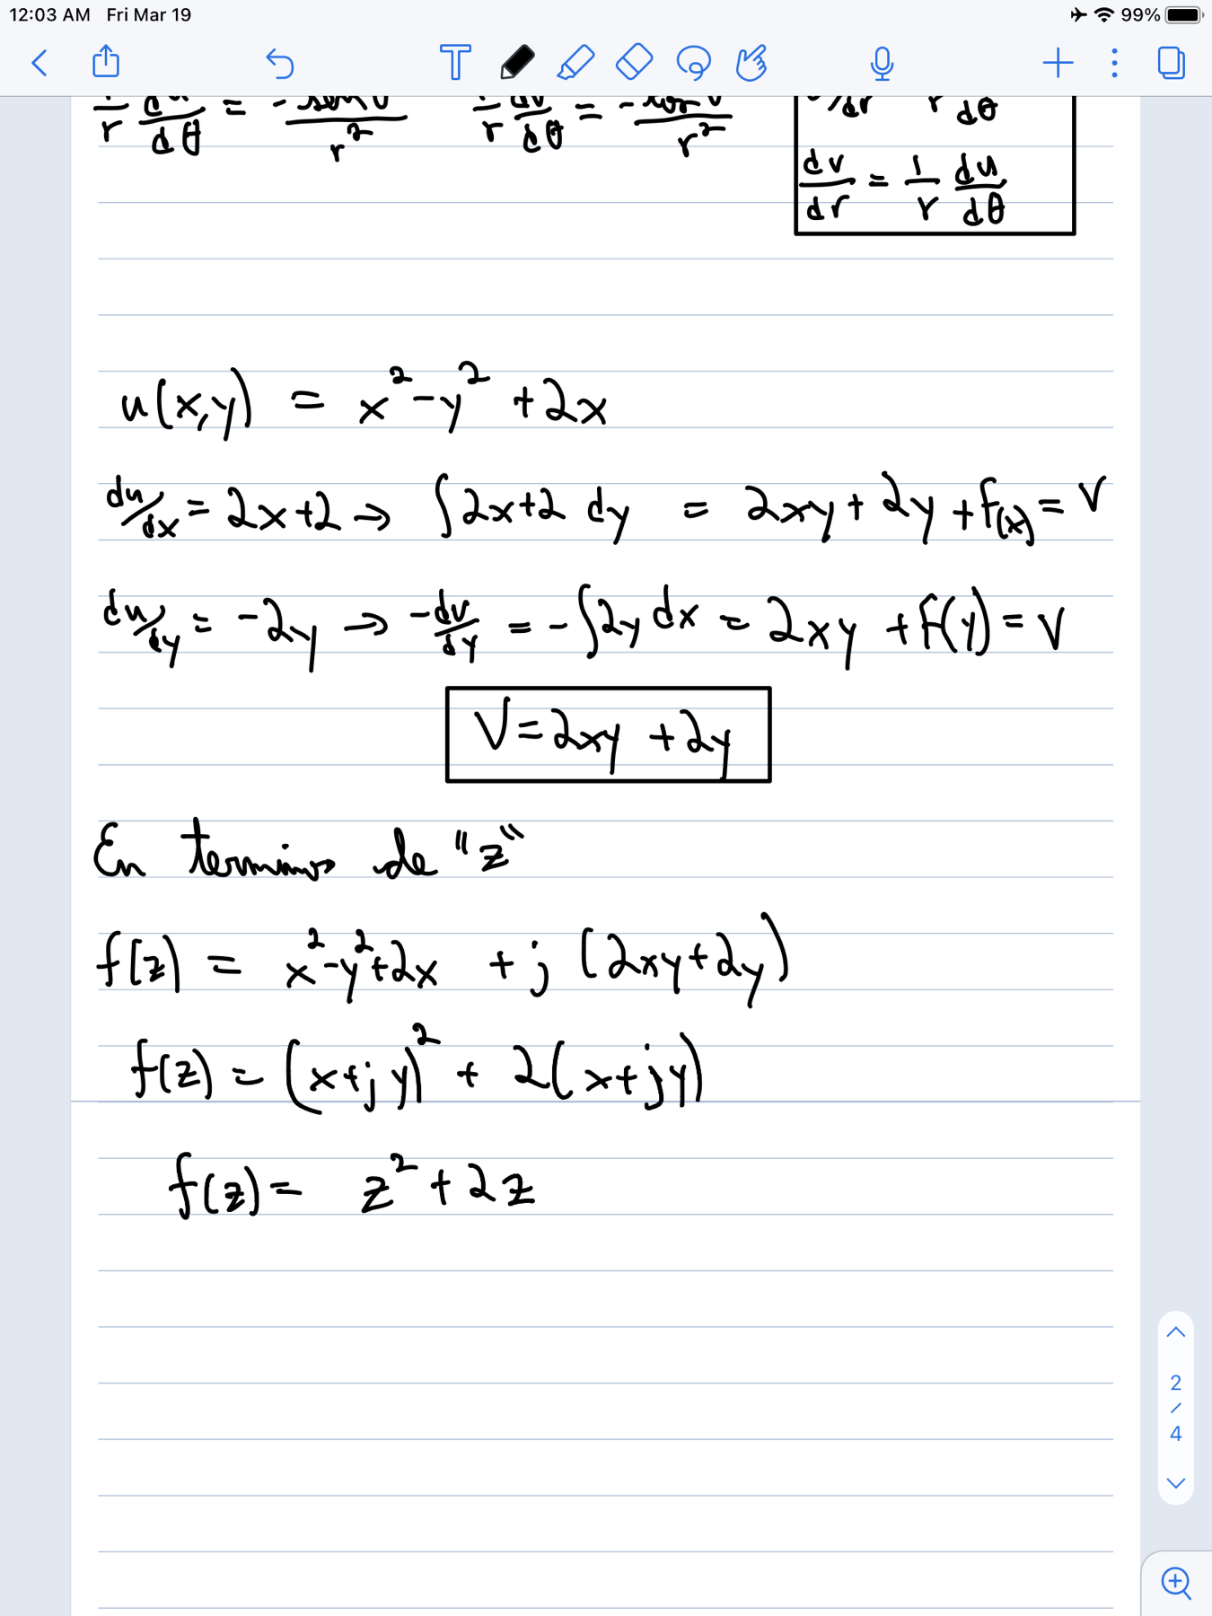 12:03 AM Fri Mar 19 99%
T
1/r du/dθ = - sen θ / r² 1/r dv/dθ = - cos θ / r² /dr r dθ
dv/dr = 1/r du/dθ
u(x,y) = x² - y² + 2x
du/dx = 2x+2 → ∫2x+2 dy = 2xy + 2y + F(x) = V
du/dy = -2y → -dv/dy = -∫2y dx = 2xy + F(y) = V
V = 2xy + 2y
En terminos de "z"
f(z) = x² - y² + 2x + j (2xy+2y)
f(z) = (x+jy)² + 2(x+jy)
f(z) = z² + 2z
2
/
4